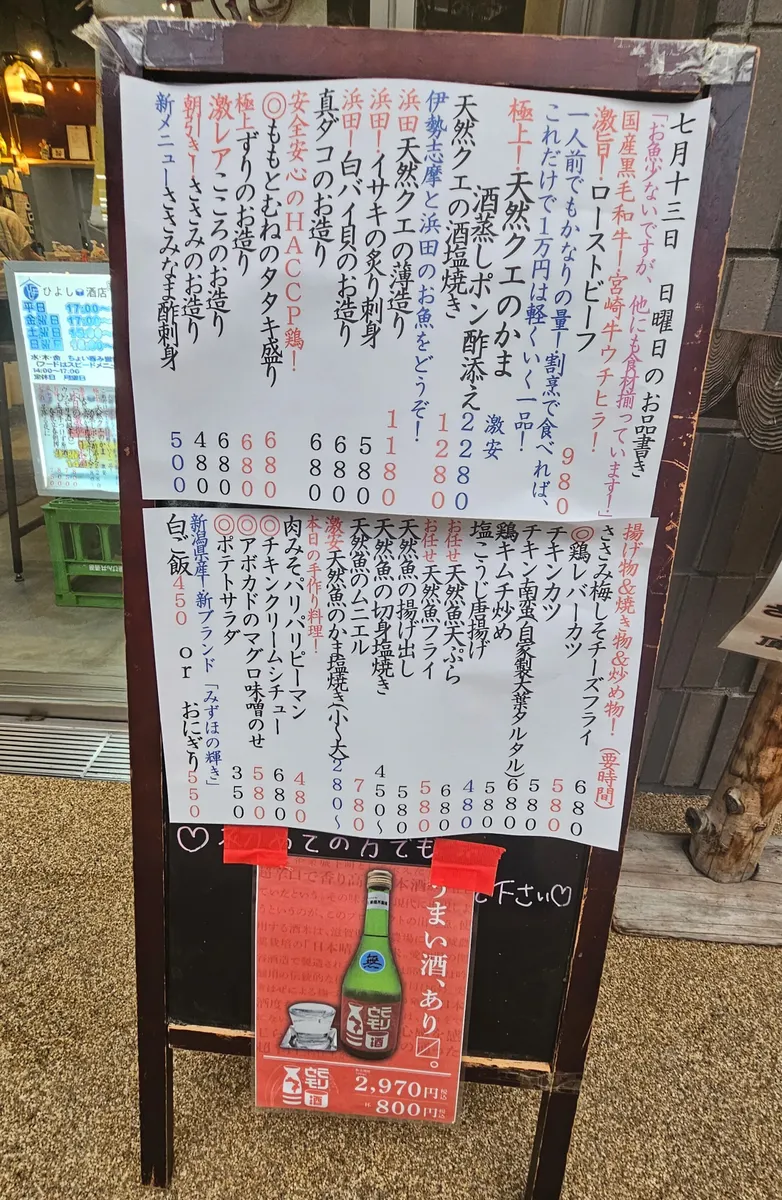 七月十三日 日曜日のお品書き
「お魚少ないですが、他にも食材揃っています!」
国産黒毛和牛!宮崎牛ウチヒラ!
激旨!ローストビーフ 980
一人前でもかなりの量!割烹で食べれば、
これだけで1万円は軽くいく一品!
極上!天然クエのかま
酒蒸しポン酢添え 激安 2280
天然クエの酒塩焼き 1280
伊勢志摩と浜田のお魚をどうぞ!
浜田 天然クエの薄造り 1180
浜田!イサキの炙り刺身 580
浜田!白バイ貝のお造り 680
真ダコのお造り 680
安全安心のHACCP鶏!
◎ももとむねのタタキ盛り 680
極上ずりのお造り 680
激レアこころのお造り 680
朝引き!ささみのお造り 480
新メニューささみなま酢刺身 500
揚げ物&焼き物&炒め物!(要時間)
ささみ梅しそチーズフライ 680
◎鶏レバーカツ 580
チキンカツ 580
チキン南蛮(自家製大葉タルタル) 680
鶏キムチ炒め 580
塩こうじ唐揚げ 480
お任せ天然魚天ぷら 680
お任せ天然魚フライ 580
天然魚の揚げ出し 580
天然魚の切身塩焼き 450~
天然魚のムニエル 780
激安天然魚のかま塩焼き(小~大) 280~
本日の手作り料理!
肉みそパリパリピーマン 480
◎チキンクリームシチュー 680
◎アボカドのマグロ味噌のせ 580
◎ポテトサラダ 350
新潟県産!新ブランド「みずほの輝き」
白ご飯450 or おにぎり550
ての方でも
下さい♡
うまい酒、あり〼。
無
酒
2,970円税込
800円税込
ひよし酒店
平日 17:00~
金曜日 17:00~
土曜日
日曜日
水・木・金 ちょい呑み
(フードはスピードメニ
14:00~17:00
定休日 月曜日